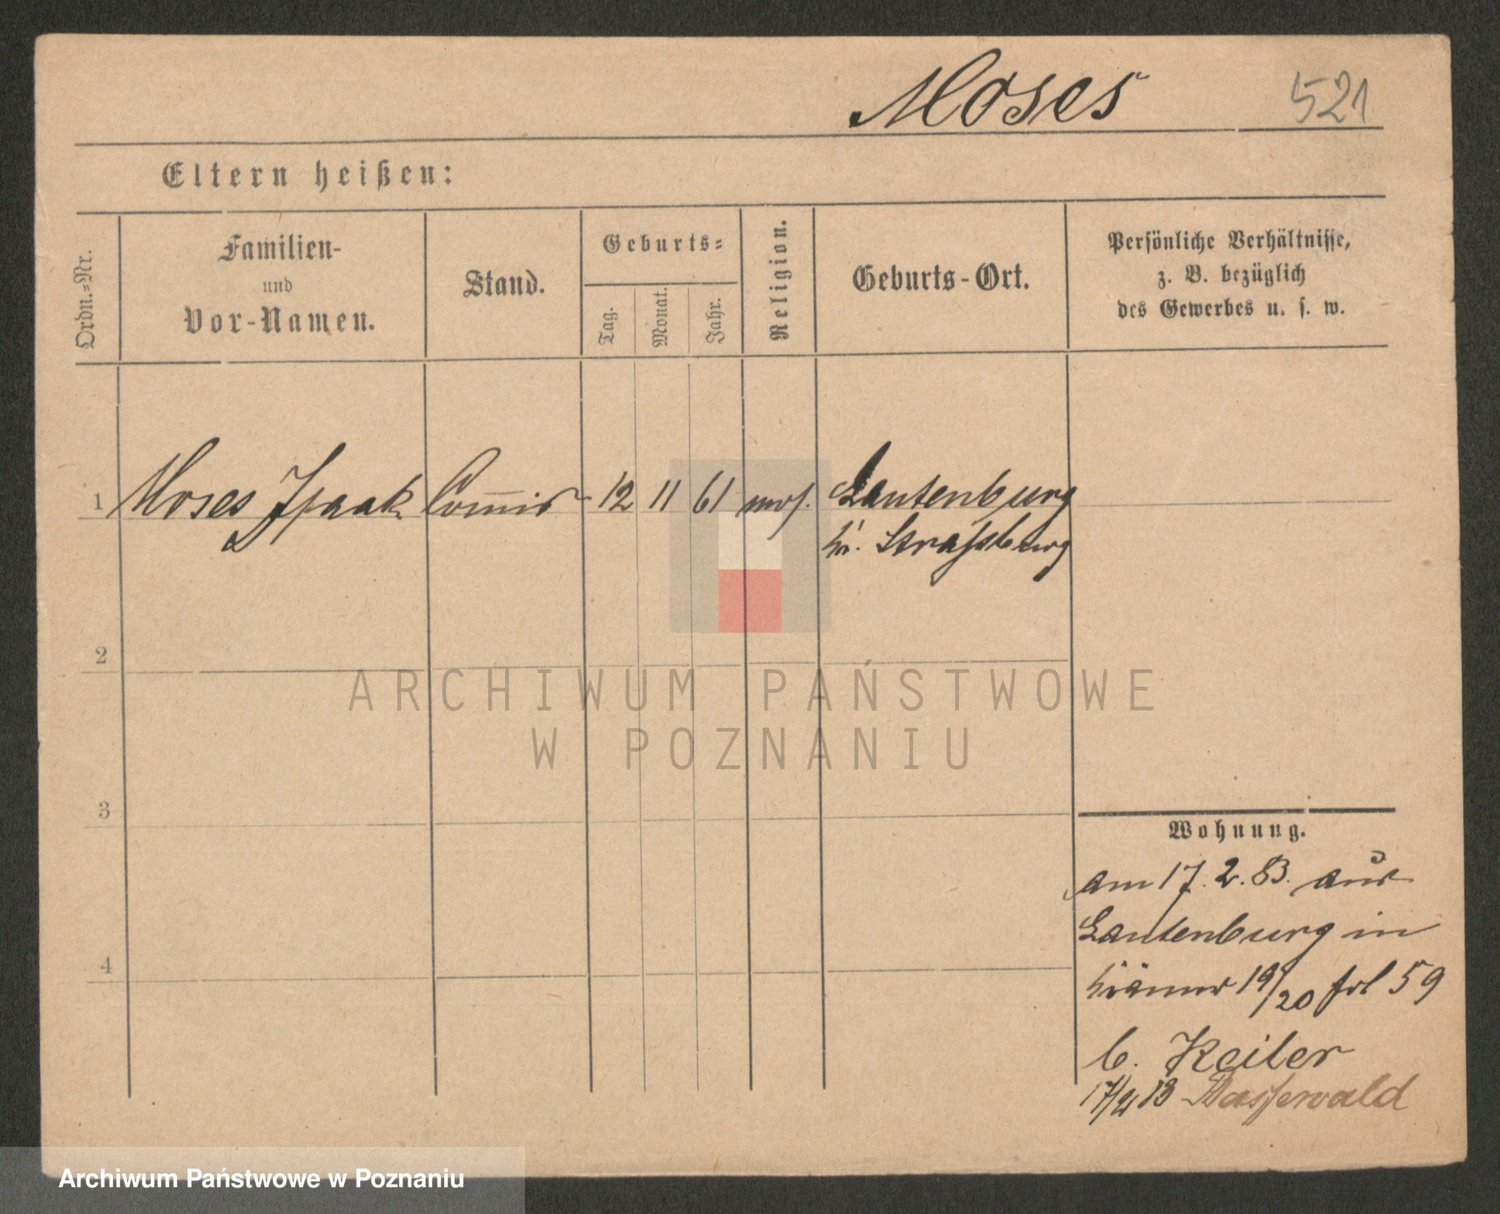 Moses 521
Eltern heißen:
Ordn.-Nr.
Familien-
und
Vor-Namen.
Stand.
Geburts-
Tag.
Monat.
Jahr.
Religion.
Geburts-Ort.
Persönliche Verhältnisse,
z. B. bezüglich
des Gewerbes u. s. w.
1 Moses Isaak Commis 12 11 61 mos. Lautenburg
Kr. Strasburg
2
3
4
Wohnung.
am 17.2.83. aus
Lautenburg in
19/20 59
b. Keiler
ARCHIWUM PAŃSTWOWE
W POZNANIU
Archiwum Państwowe w Poznaniu